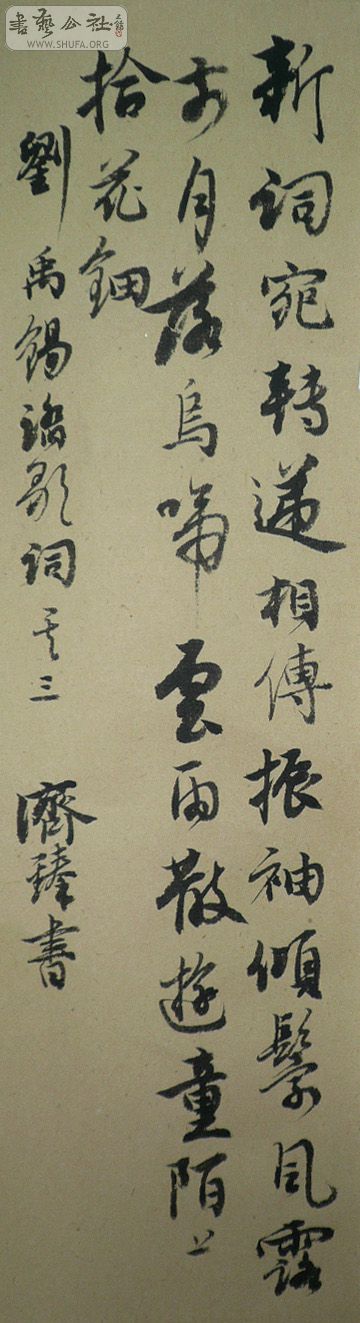 書藝公社
www.SHUFA.ORG
新詞宛轉遞相傳振袖傾鬟風露
前月落烏啼雲雨散遊童陌上
拾花鈿
劉禹錫踏歌詞其三 濟臻書